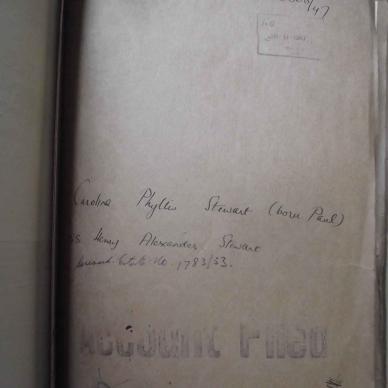 /47
Carolina Phyllis Stewart (born Paul)
Henry Alexander Stewart
Estate No 1783/53.
Account Filed